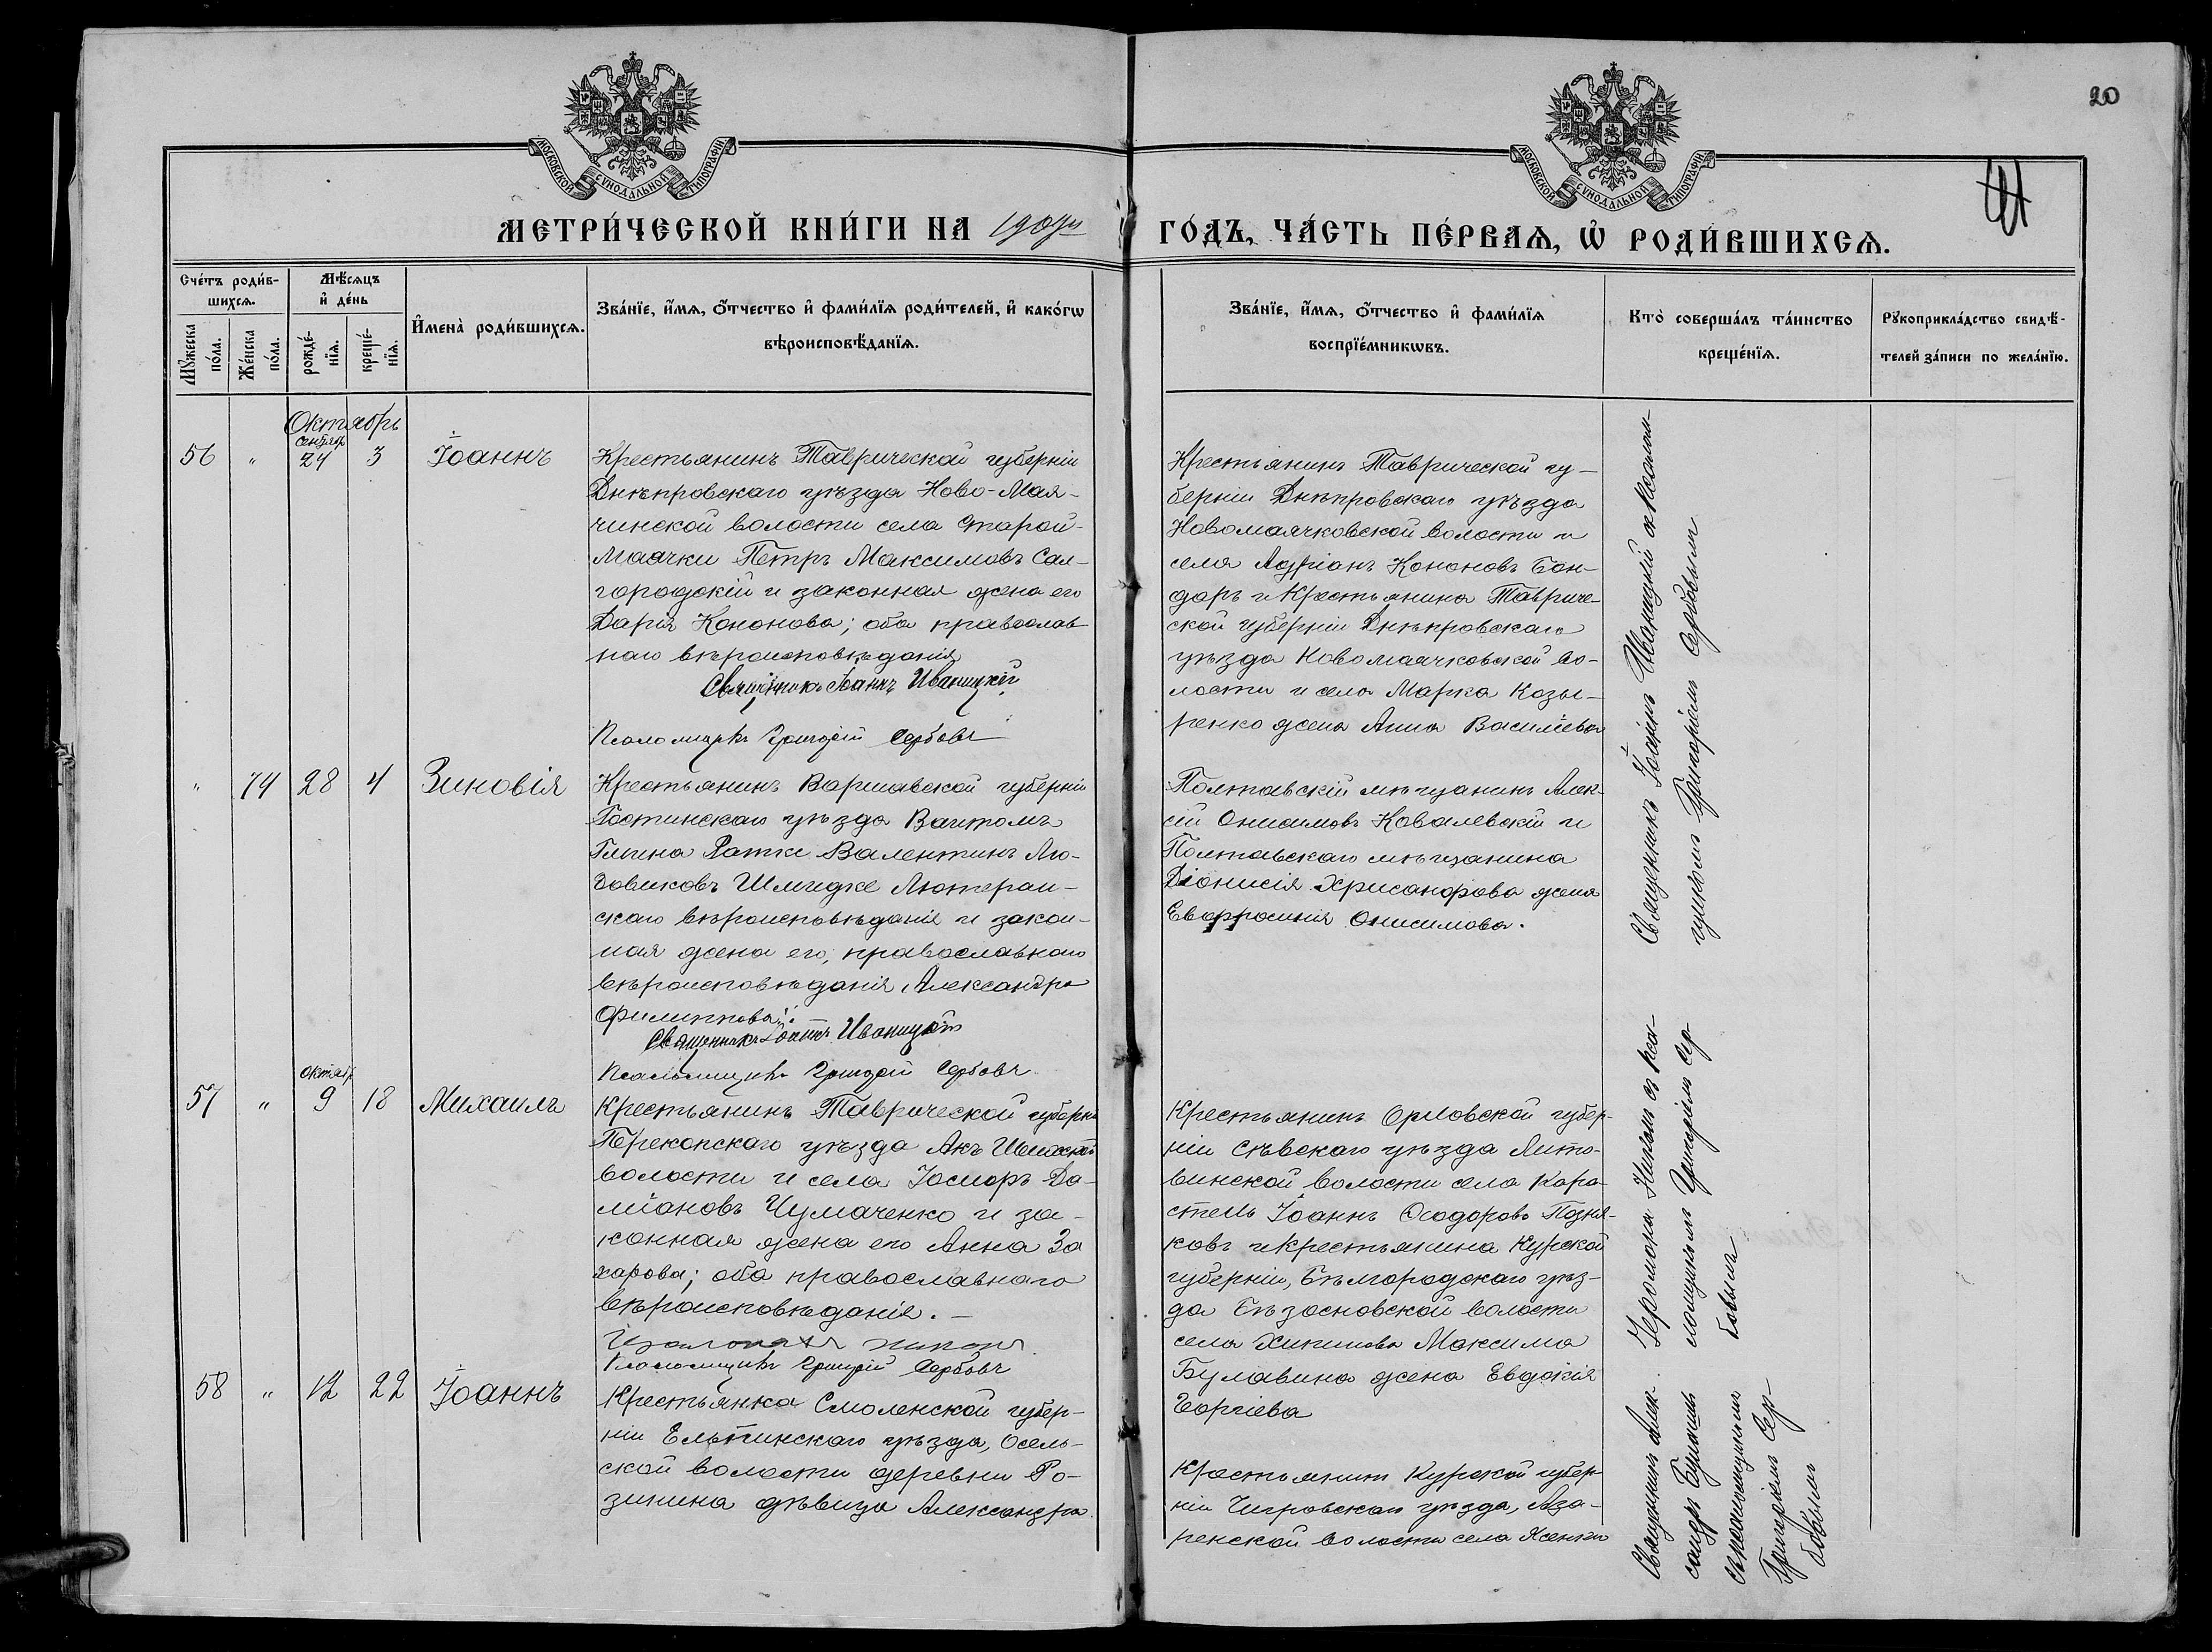 20
МОСКОВСКОЙ СУНОДАЛЬНОЙ ТИПОГРАФІИ
МОСКОВСКОЙ СУНОДАЛЬНОЙ ТИПОГРАФІИ
МЕТРИ́ЧЕСКОЙ КНИ́ГИ НА
ГО́ДЪ, ЧА́СТЬ ПЕ́РВАѦ, Ѡ҆ РОДИ́ВШИХСѦ.
Сче́тъ роди́в-
шихсѧ.
Мѣ́сѧцъ
и҆ де́нь
Мꙋ́жеска
по́ла.
Же́нска
по́ла.
рожде́-
нїѧ.
креще́-
нїѧ.
И҆мена̀ роди́вшихсѧ.
Зва́нїе, и҆́мѧ, ѻ҆́тчество и҆ фами́лїѧ роди́телей, и҆ како́гѡ
вѣроисповѣ́данїѧ.
Зва́нїе, и҆́мѧ, ѻ҆́тчество и҆ фами́лїѧ
воспрїе́мникѡвъ.
Кто̀ соверша́лъ та́инство
креще́нїѧ.
Рꙋкоприкла́дство свидѣ́-
телей за́писи по жела́нїю.
Октябрь
сентябр
56 " 24 3 Іоаннъ
Крестьянинъ Таврической губерніи
Днѣпровскаго уѣзда Ново-Мая-
чинской волости села Старой-
Маячки Петръ Максимовъ Сал-
городскій и законная жена его
Дарія Кононова; оба православ
наго вѣроисповѣданія
Священникъ Іоаннъ Иваницкій
Псаломщикъ Григорій Сербовъ
Крестьянинъ Таврической гу-
берніи Днѣпровскаго уѣзда
Новомаячковской волости и
села Адріанъ Кононовъ Бон-
дарь и Крестьянина Тавриче-
ской губерніи Днѣпровскаго
уѣзда Новомаячковской во-
лости и села Марка Козы-
ренко жена Анна Василіева
" 74 28 4 Зиновія
Крестьянинъ Варшавской губерніи
Гостинскаго уѣзда
Гмина Ратке Валентинъ Лю-
довиковъ Шмидке Лютеран-
скаго вѣроисповѣданія и закон-
ная жена его, православнаго
вѣроисповѣданія Александра
Филиппова.
Священникъ Іоаннъ Иваницкій
Псаломщикъ Григорій Сербовъ
Полтавскій мѣщанинъ Алек-
сій Онисимовъ Ковалевскій и
Полтавскаго мѣщанина
Діонисія Хрисанфова жена
Евфросинія Онисимова.
Священникъ Іоаннъ Иваницкій съ Псалом-
щикомъ Григоріемъ Сербовымъ
октябр
57 " 9 18 Михаилъ
Крестьянинъ Таврической губерні
Перекопскаго уѣзда Акъ
волости и села Іосифъ Да-
міановъ Чумаченко и за-
конная жена его Анна За
харова; оба православнаго
вѣроисповѣданія.
Псаломщикъ Григорій Сербовъ
Крестьянинъ Орловской губер-
ніи Сѣвскаго уѣзда Лито-
винской волости села Кара-
стель Іоаннъ Ѳеодоровъ Позня-
ковъ и Крестьянина Курской
губерніи, Бѣлгородскаго уѣз-
да волости
села Максима
Булавина жена Евдокія
Георгіева
Іеромонах съ пса-
ломщикомъ Григоріемъ Сер-
бовымъ
58 " 12 22 Іоаннъ
Крестьянка Смоленской губер-
ніи Ельнинскаго уѣзда, Осель-
ской волости деревни Ро-
зинина дѣвица Александра
Крестьянинъ Курской губер-
ніи уѣзда, Аза-
ренской волости села Ксенки
Священникъ Алек-
сандръ
съ псаломщикомъ
Григоріемъ Сер-
бовымъ